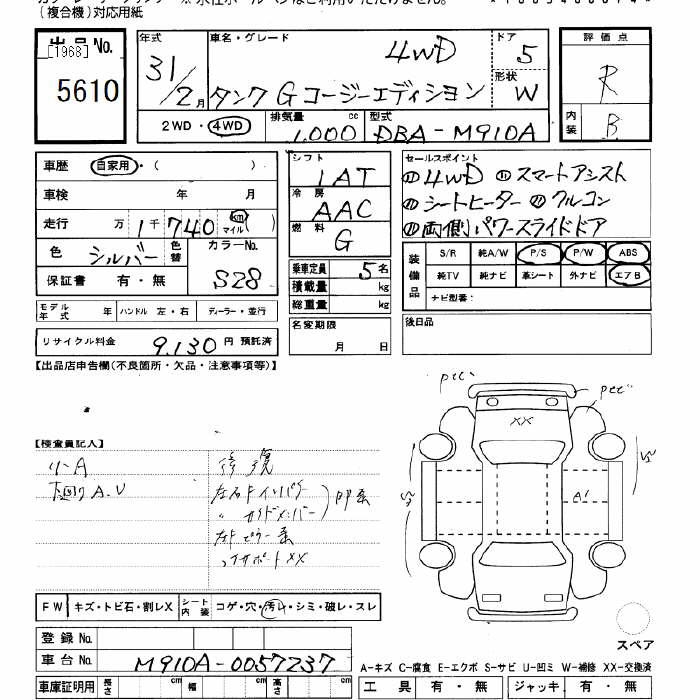 (複合機)対応用紙
出品No.
[1968]
5610
年式
31/2月
車名・グレード
4WD
タンク G コージーエディション
ドア 5
形状 W
評価点
R
内装 B
2WD・4WD
排気量 1,000 cc
型式 DBA-M910A
車歴 自家用・( )
車検 年 月
走行 万 1千740 km マイル
色 シルバー 色替
カラーNo. S28
保証書 有・無
シフト IAT
冷房 AAC
燃料 G
乗車定員 5名
積載量 kg
総重量 kg
セールスポイント
①4WD ②スマートアシスト
③シートヒーター ④クルコン
⑤両側パワースライドドア
装備品
S/R 純A/W P/S P/W ABS
純TV 純ナビ 革シート 外ナビ エアB
ナビ型番:
モデル年式 年 ハンドル 左・右 ディーラー・並行
リサイクル料金 9,130 円 預託済
名変期限 月 日
後日品
【出品店申告欄(不良箇所・欠品・注意事項等)】
【検査員記入】
リーA
下回りA.U
修復
左右Fインパネ
〃 サイドメンバー
左Fピラー
コアサポートXX
XX
A1
FW キズ・トビ石・割レX
シート内装 コゲ・穴・汚レ・シミ・破レ・スレ
登録No.
車台No. M910A-0057237
車庫証明用 長さ cm 幅 cm 高さ cm
スペア
A-キズ C-腐食 E-エクボ S-サビ U-凹ミ W-補修 XX-交換済
工具 有・無 ジャッキ 有・無